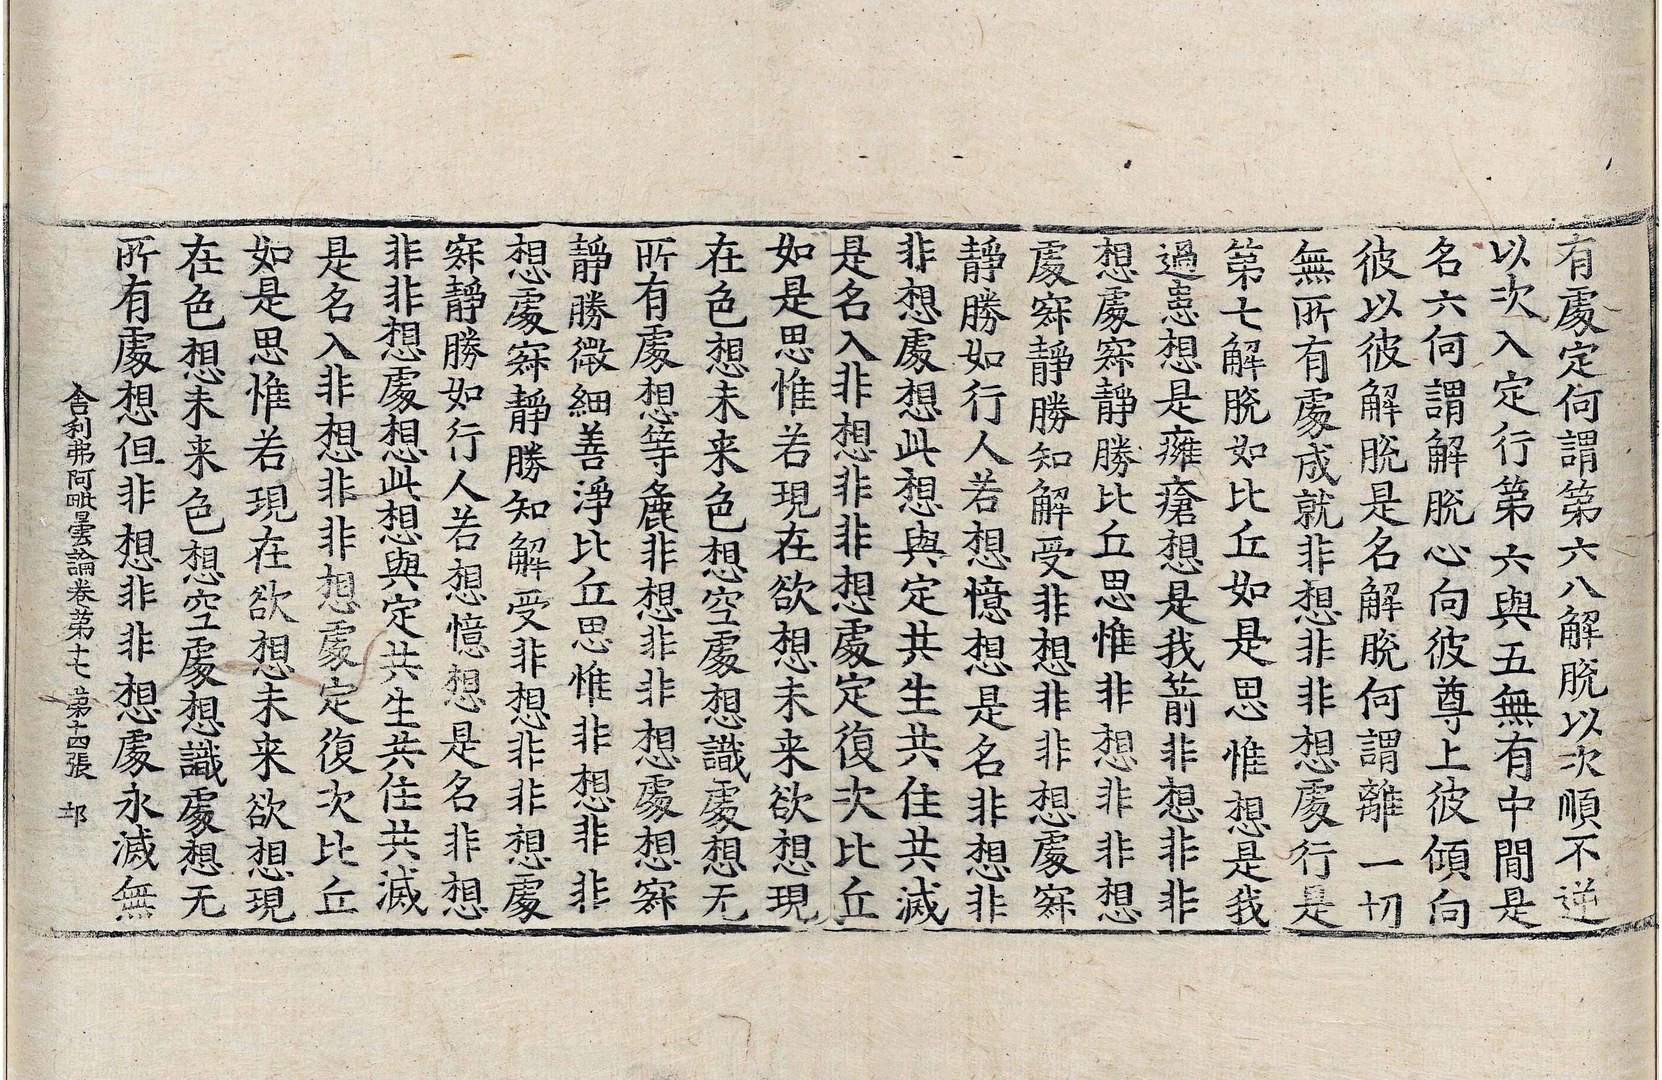 有處定何謂第六八解脫以次順不逆
以次入定行第六與五無有中間是
名六何謂解脫心向彼尊上彼傾向
彼以彼解脫是名解脫何謂離一切
無所有處成就非想非非想處行是
第七解脫如比丘如是思惟想是我
過患想是癰瘡想是我箭非想非非
想處寂靜勝比丘思惟非想非非想
處寂靜勝知解受非想非非想處寂
靜勝如行人若想憶想是名非想非
非想處想此想與定共生共住共滅
是名入非想非非想處定復次比丘
如是思惟若現在欲想未来欲想現
在色想未来色想空處想識處想无
所有處想等麁非想非非想處想寂
靜勝微細善淨比丘思惟非想非非
想處寂靜勝知解受非想非非想處
寂靜勝如行人若想憶想是名非想
非非想處想此想與定共生共住共滅
是名入非想非非想處定復次比丘
如是思惟若現在欲想未来欲想現
在色想未来色想空處想識處想无
所有處想但非想非非想處永滅無
舍利弗阿毗曇論卷第十七 第十四張 邙